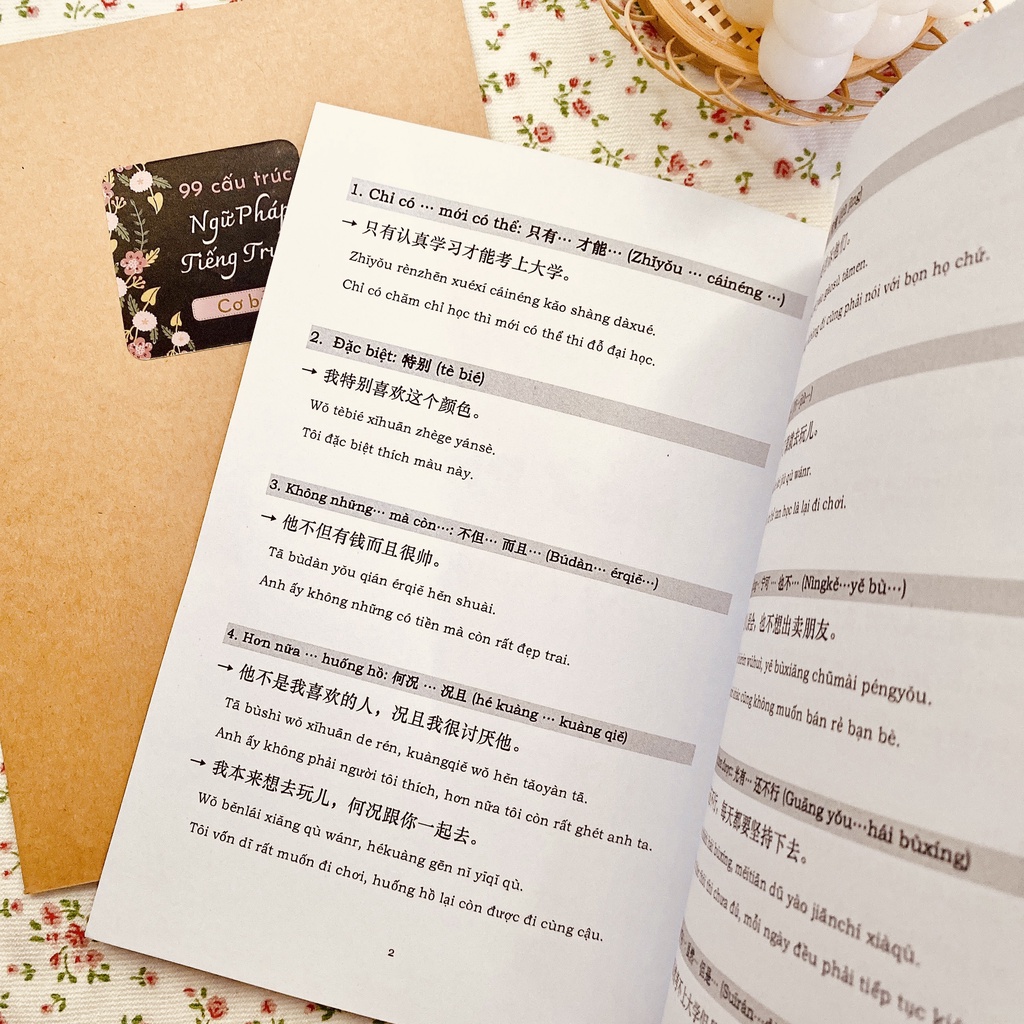 99 cấu trúc
Ngữ Pháp
Tiếng
Cơ
1. Chỉ có ··· mới có thể: 只有··· 才能··· (Zhǐyǒu ··· cáinéng ···)
→ 只有认真学习才能考上大学。
Zhǐyǒu rènzhēn xuéxí cáinéng kǎo shàng dàxué.
Chỉ có chăm chỉ học thì mới có thể thi đỗ đại học.
2. Đặc biệt: 特别 (tè bié)
→ 我特别喜欢这个颜色。
Wǒ tèbié xǐhuān zhège yánsè.
Tôi đặc biệt thích màu này.
3. Không những··· mà còn···: 不但··· 而且··· (Bùdàn··· érqiě···)
→ 他不但有钱而且很帅。
Tā bùdàn yǒu qián érqiě hěn shuài.
Anh ấy không những có tiền mà còn rất đẹp trai.
4. Hơn nữa ··· huống hồ: 何况 ··· 况且 (hé kuàng ··· kuàng qiě)
→ 他不是我喜欢的人，况且我很讨厌他。
Tā bùshì wǒ xǐhuān de rén, kuàngqiě wǒ hěn tǎoyàn tā.
Anh ấy không phải người tôi thích, hơn nữa tôi còn rất ghét anh ta.
→ 我本来想去玩儿，何况跟你一起去。
Wǒ běnlái xiǎng qù wánr, hékuàng gēn nǐ yīqǐ qù.
Tôi vốn dĩ rất muốn đi chơi, huống hồ lại còn được đi cùng cậu.
2
gàosù tāmen.
cũng phải nói với bọn họ chứ.
去玩儿。
qù wánr.
học là lại đi chơi.
宁可 ··· 也不··· (Nìngkě···yě bù···)
也不想出卖朋友。
wùhuì, yě bùxiǎng chūmài péngyǒu.
cũng không muốn bán rẻ bạn bè.
光有··· 还不行 (Guāng yǒu···hái bùxíng)
每天都要坚持下去。
bùxíng, měitiān dū yào jiānchí xiàqù.
thì chưa đủ, mỗi ngày đều phải tiếp tục
但是··· (Suīrán
不上大学但